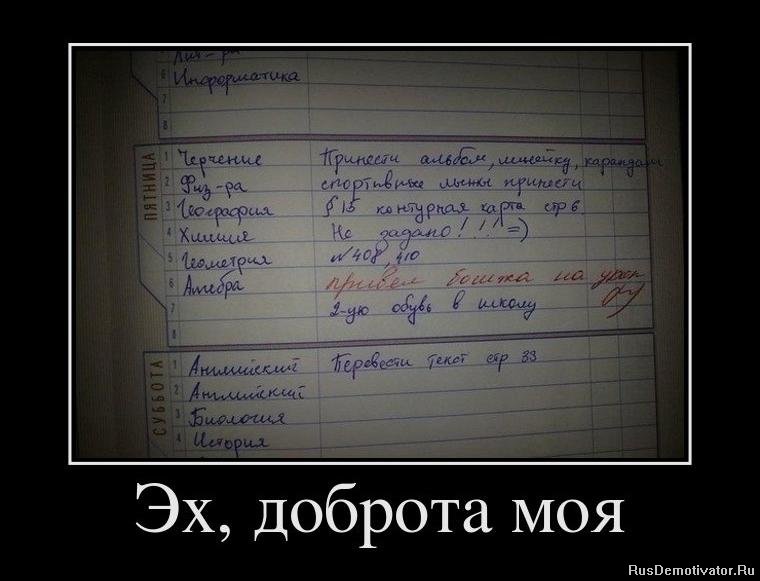 Лит-ра
6 Информатика
7
8
ПЯТНИЦА
1 Черчение Принести альбом, линейку, карандаш
2 Физ-ра спортивные лыжы принести
3 География § 15 контурная карта стр 6
4 Химия Не задано!!! =)
5 Геометрия №408, 410
6 Алгебра привел бомжа на урок
7 2-ую обувь в школу
8
СУББОТА
1 Английский Перевести текст стр 33
2 Английский
3 Биология
4 История
Эх, доброта моя
RusDemotivator.Ru